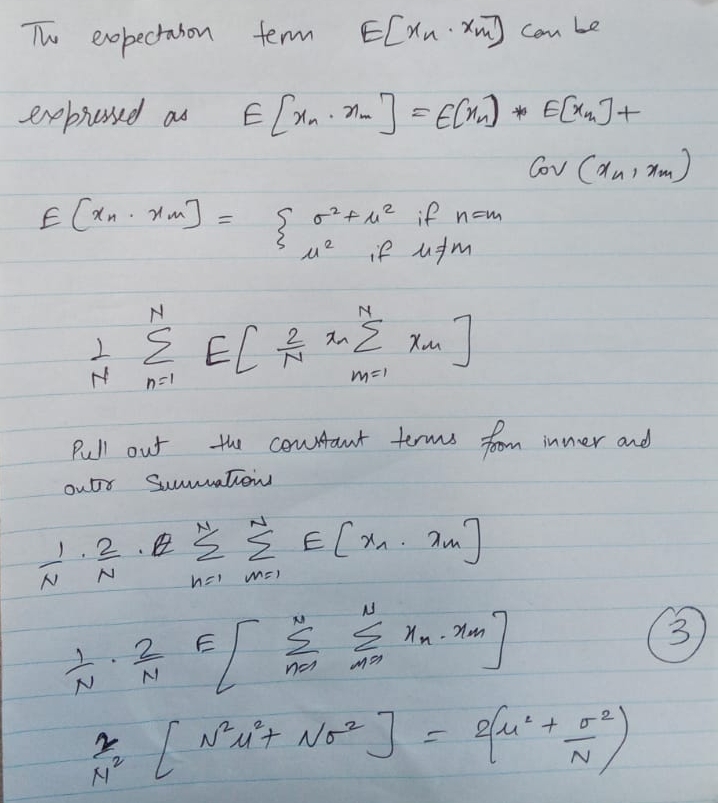 The expectation term E[xn . xm] can be
expressed as E[xn . xm] = E[xn] * E[xm] +
Cov (xn, xm)
E[xn . xm] = { σ² + μ² if n=m
μ² if n≠m
1/N Σ_{n=1}^{N} E[ 2/N xn Σ_{m=1}^{N} xm ]
Pull out the constant terms from inner and
outer Summations
1/N . 2/N . Σ_{n=1}^{N} Σ_{m=1}^{N} E[xn . xm]
1/N . 2/N E[ Σ_{n=1}^{N} Σ_{m=1}^{N} xn . xm ] 3
2/N² [ N²μ² + Nσ² ] = 2(μ² + σ²/N)